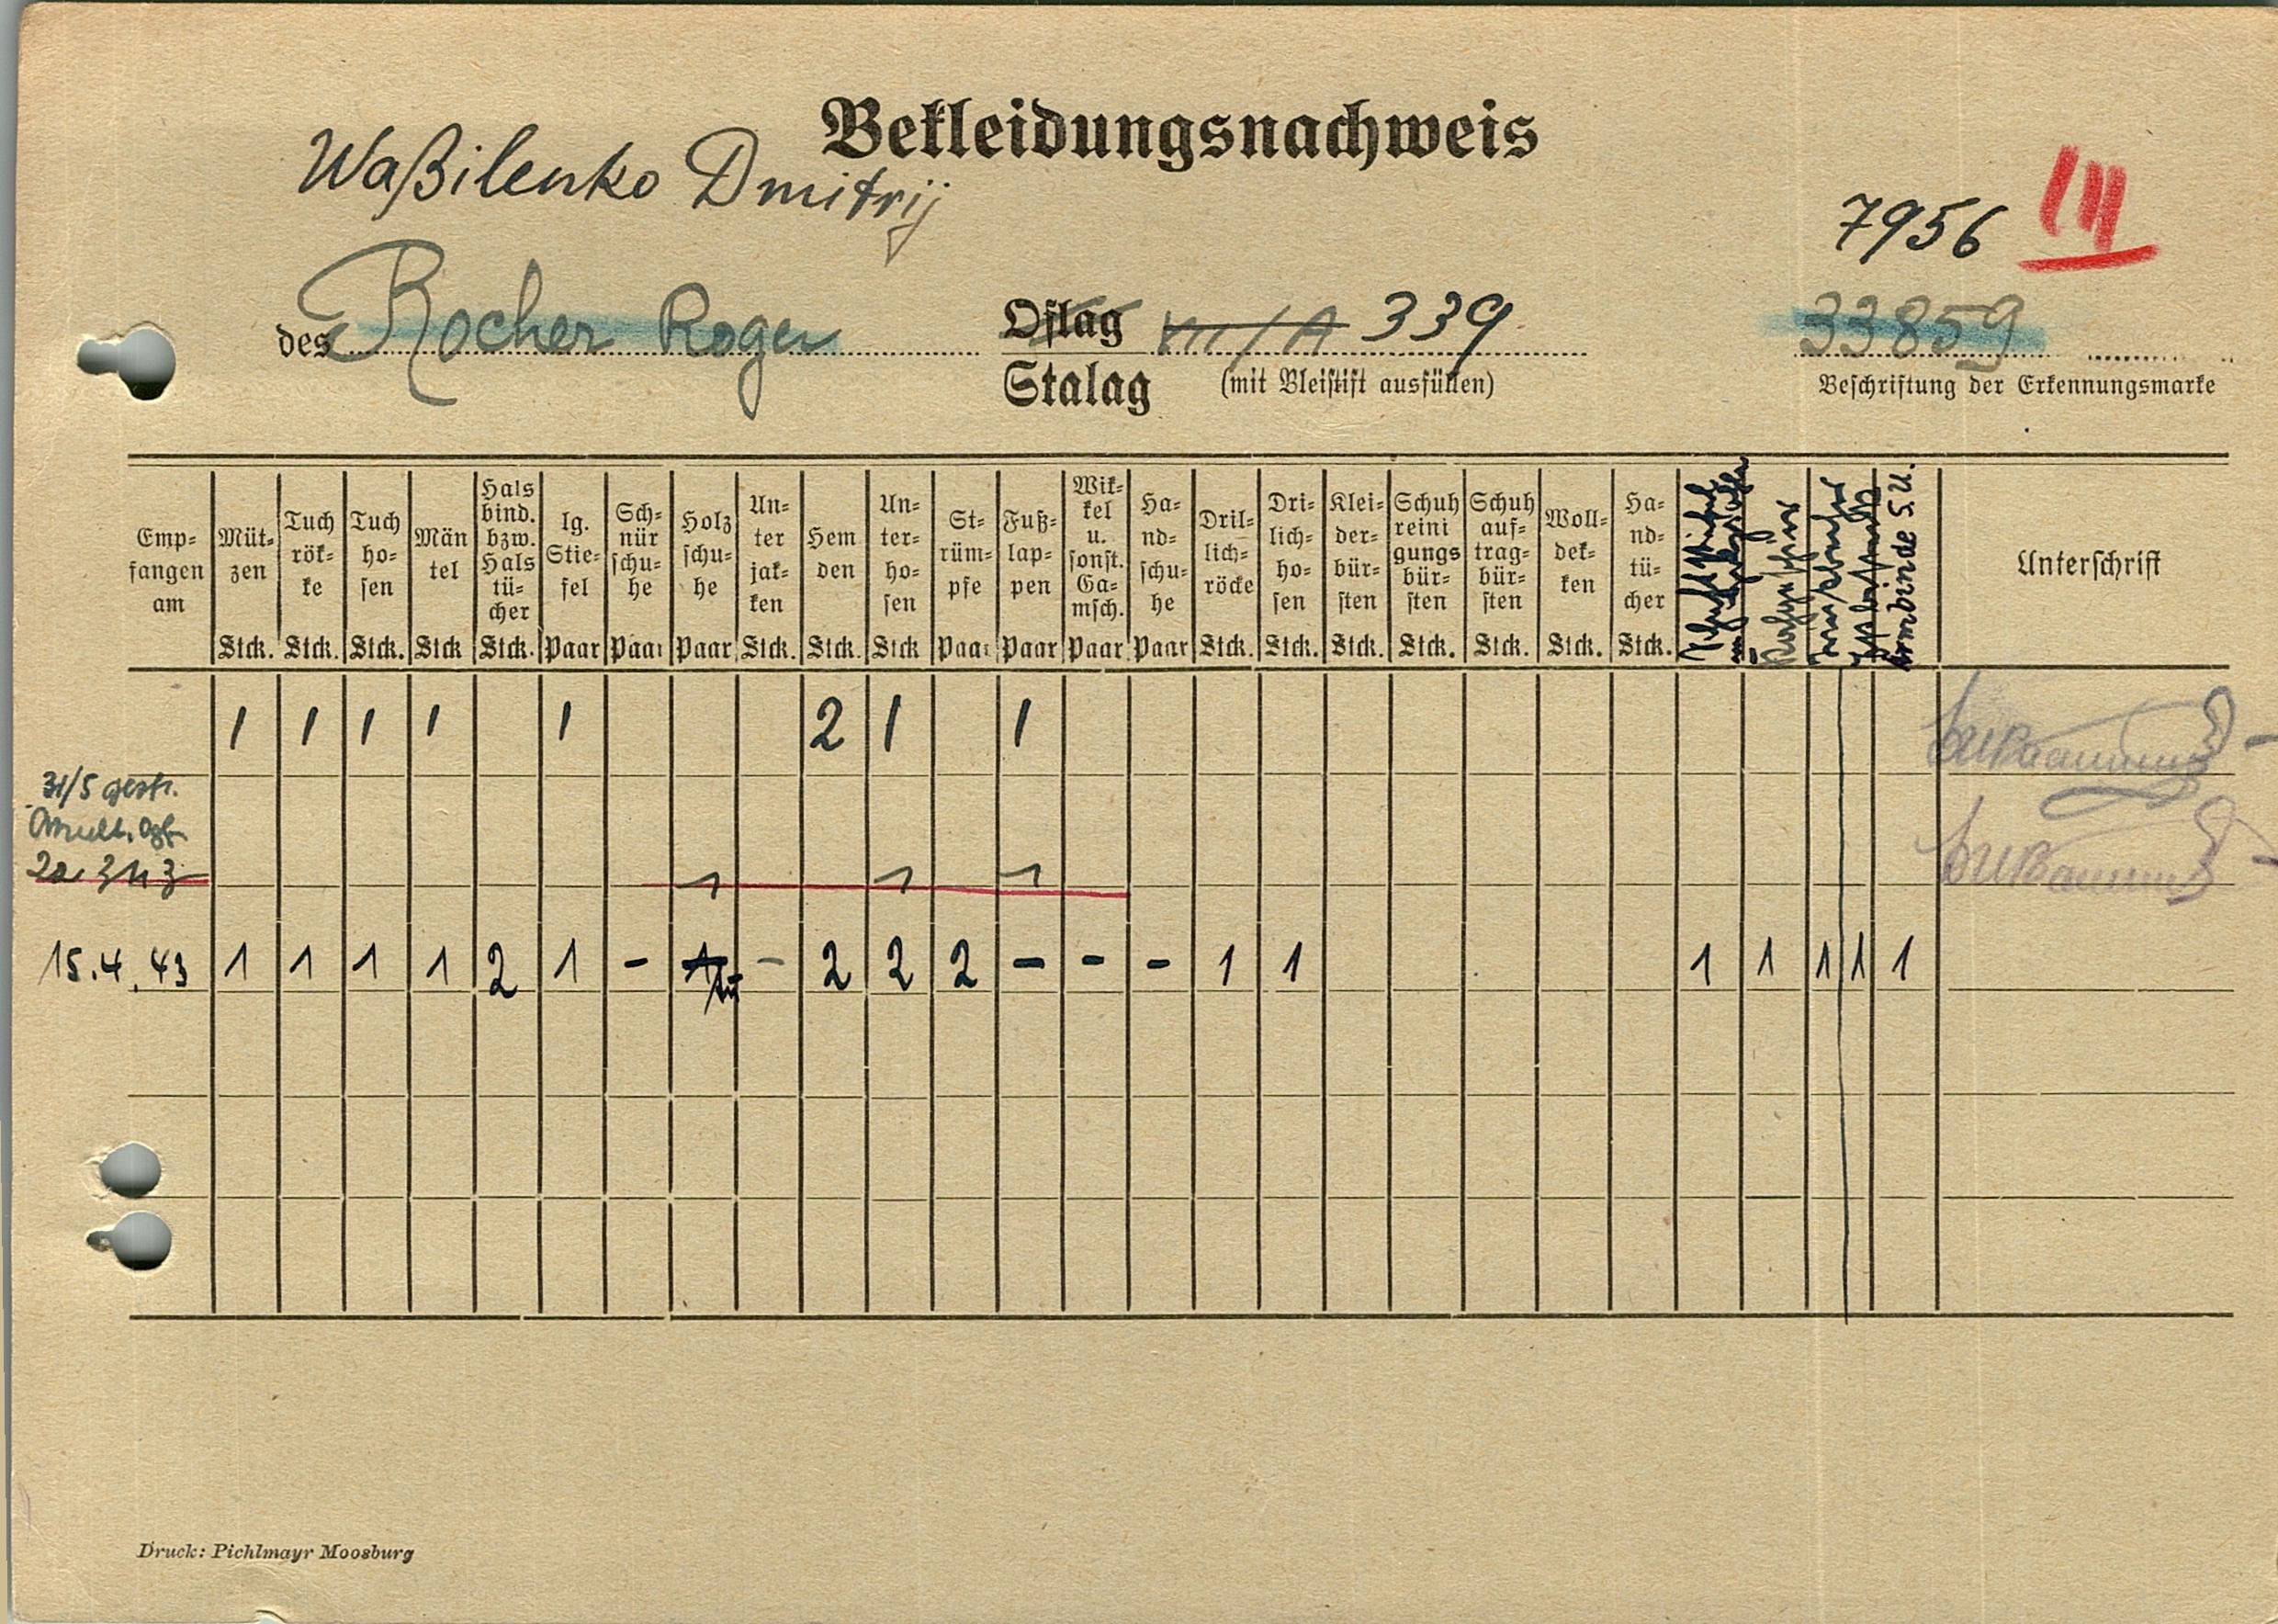 Bekleidungsnachweis
Waßilenko Dmitrij
7956 III
des Rocher Roger Oflag VII/A 339 33859
Stalag (mit Bleistift ausfüllen) Beschriftung der Erkennungsmarke
Emp-fangen am Müt-zen Stck. Tuch rök-ke Stck. Tuch ho-sen Stck. Män tel Stck Hals bind. bzw. Hals tü-cher Stck. lg. Stie-fel Paar Sch-nür schu-he Paar Holz schu-he Paar Un-ter jak-ken Stck. Hem den Stck. Un-ter-ho-sen Stck St-rüm-pfe Paar Fuß-lap-pen Paar Wik-kel u. sonst. Ga-msch. Paar Ha-nd-schu-he Paar Dril-lich-röcke Stck. Dri-lich-ho-sen Stck. Klei-der-bür-sten Stck. Schuh reini gungs bür-sten Stck. Schuh auf-trag-bür-sten Stck. Woll-dek-ken Stck. Ha-nd-tü-cher Stck. Armbinde S.U. Unterschrift
1 1 1 1 1 2 1 1
31/5 gestr.
1 1 1
15.4.43 1 1 1 1 2 1 - 1 - 2 2 2 - - - 1 1 1 1 1 1 1
Druck: Pichlmayr Moosburg